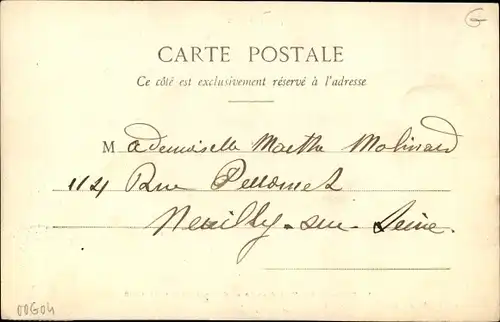 G
CARTE POSTALE
Ce côté est exclusivement réservé à l'adresse
Mademoiselle Marthe Molinard
114 Rue Perronet
Neuilly-sur-Seine.
00604